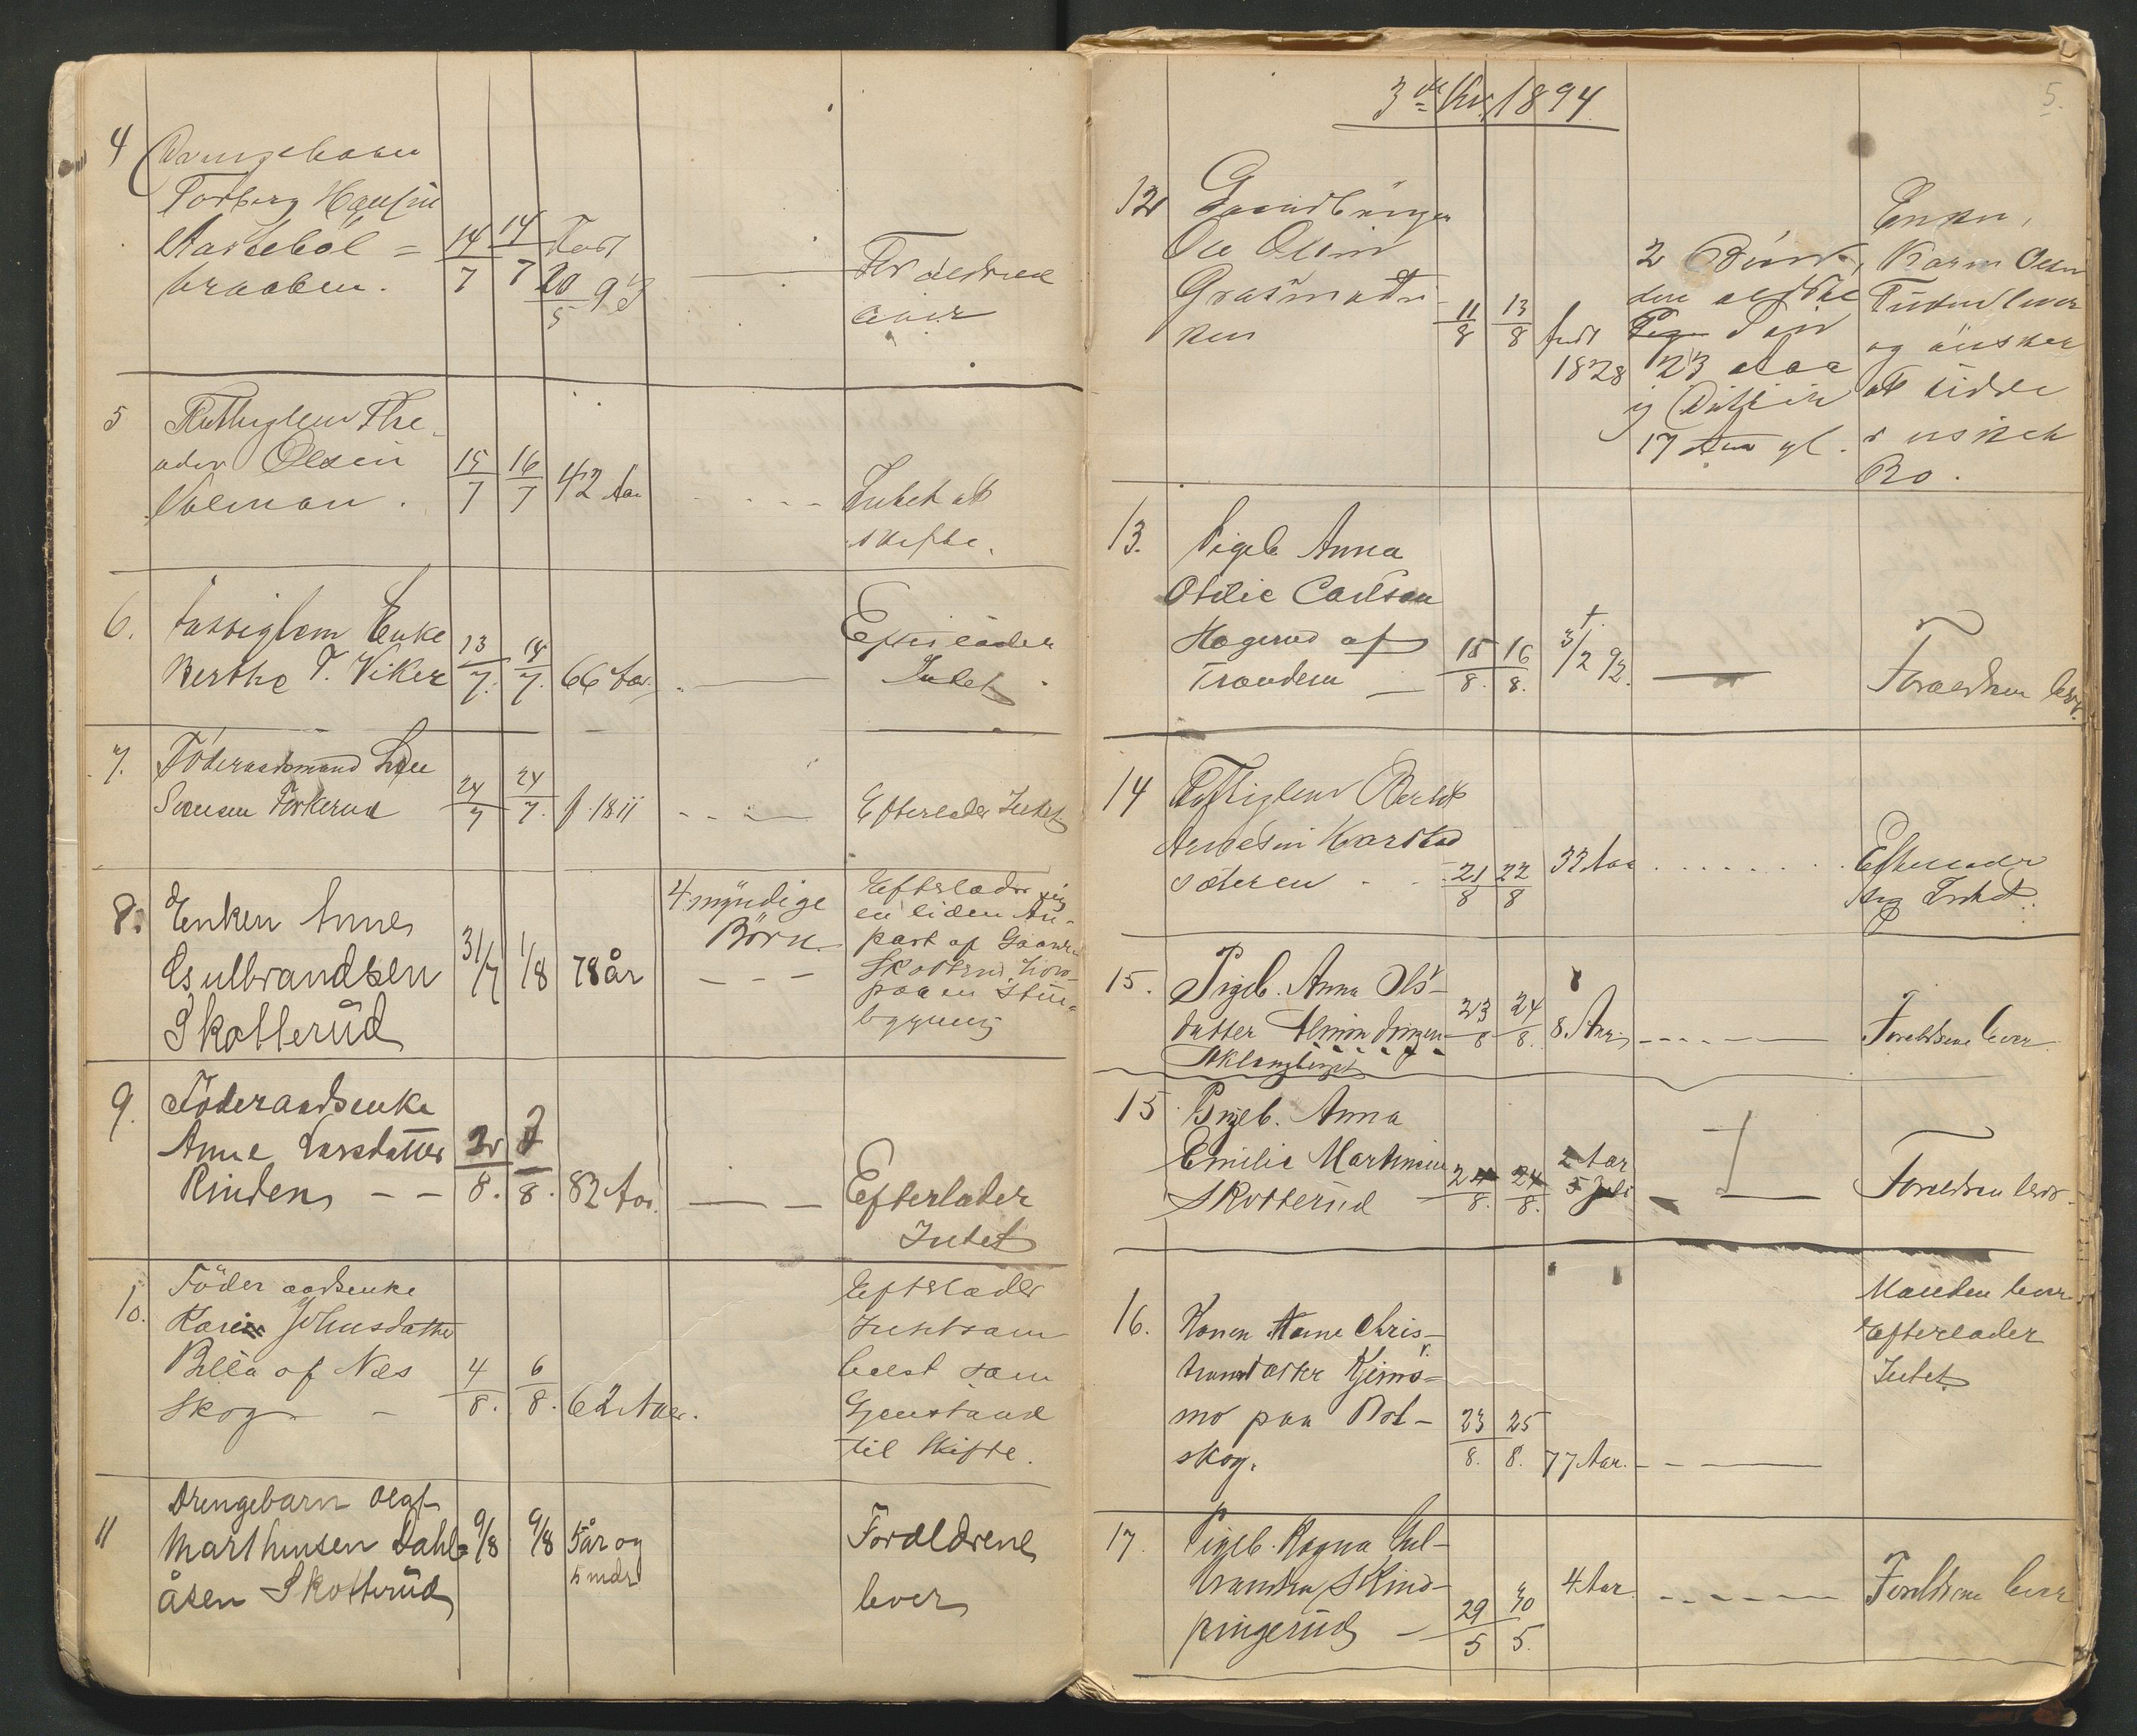 4 Drengebarn
Torberg Hansen
Aarsebøl =
braaten. 14/7 14/7 Født 20/5 93 Forældrene
lever
5 Fattiglem The-
odor Olsen
Volman. 15/7 16/7 42 Aar Intet at
skifte.
6. Fattiglem Enke
Berthe T. Viker 13/7. 14/7. 66 Aar. Efterlader
Intet
7. Föderaadsmand
Svensen Torkerud 24/7 24/7. f. 1811 Efterlader Intet
8. Enken Anne
Gulbrandsen
Skotterüd 31/7 1/8 78 år 4 myndige
Börn. Efterlader sig
en liden An-
part af Gaarden
Skotterud,
paa en
bygning
9. Föderaadsenke
Anne Larsdatter
Rinden - - 2/8. 3/8. 82 Aar. Efterlader
Intet
10. Föder aadsenke
Karin Johnsdatter
Billa af Næs
Skog - 4/8. 6/8. 62 Aar. Efterlader
Intetsom
helst som
Gjenstand
til Skifte.
11 Drengebarn Olaf
Marthinsen Dahl=
åsen Skotterüd 9/8 9/8 5 år og
5 mdr Forældrene
lever
5.
3de Kv. 1894.
12 Grundbruger
Ole Olsen
Grasmosen
11/8 13/8 født
1828 2 Börn,
den ældste
23 Aar
og Datter
17 Aar gl. Enken,
Karen Olsen
lever
og önsker
at sidde
i uskiftet
Bo.
13. Pigeb Anna
Otilie Carlsen
Hagerud af
Trandem - 15/8. 16/8. f. 3/2 92. Forældrene lever.
14 Fattiglem Berthe
Arnesen Karstad
sæteren 21/8 22/8 32 Aar Efterlader
sig Intet.
15. Pigeb. Anna Ols-
datter Almindingen
Aklangberget 23/8 24/8. 8. Aar Forældrene lever
15. Pigeb. Anna
Emilie Martinsen
Skotterüd 24/8. 24/8. 2 Aar
5 Juli Forældrene lever
16. Konen Anne Chris-
tiansdatter Kjems=
mo paa Rot-
skog. 23/8. 25/8. 77 Aar. Manden lever
Efterlader
Intet
17. Pigeb. Ragna Gul-
brandsen Skind-
pingerüd 29/5 30/5. 4 Aar Forældrene lever